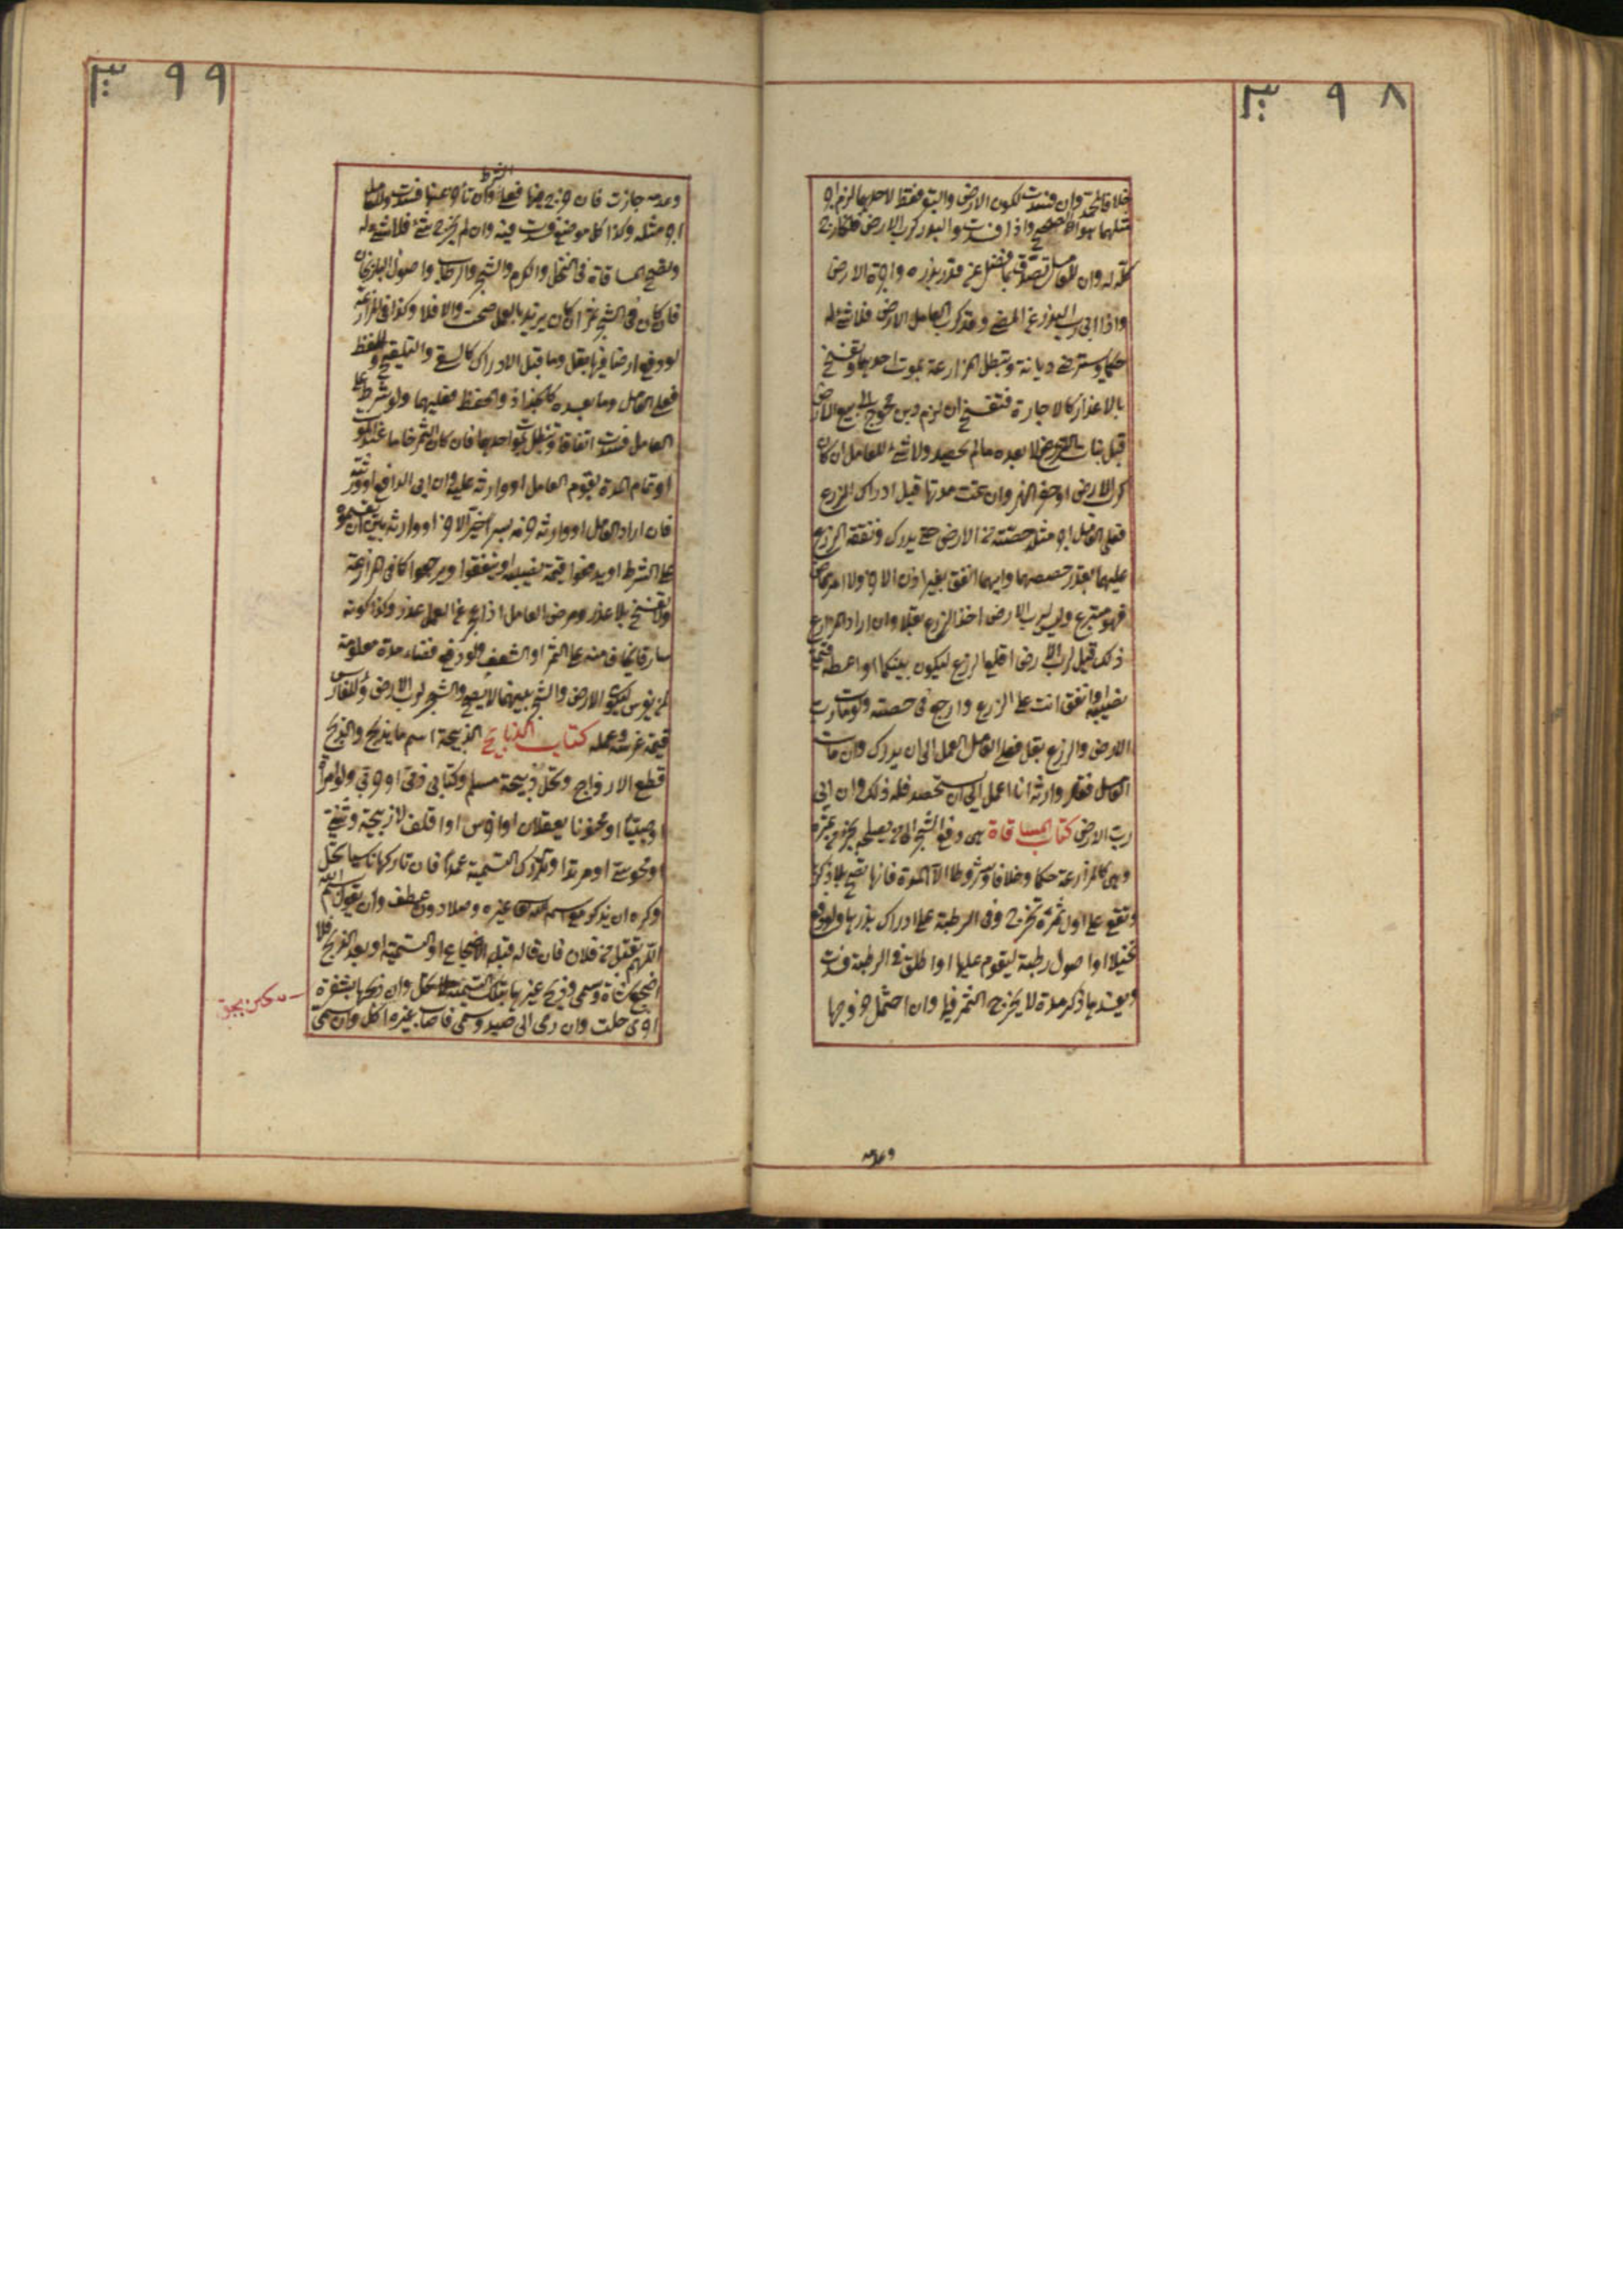 ٣٩٨
خلافا لمحمد وان فسدت لكون الارض والبقر فقط لاحدهما لزم اجر
مثلهما هو الصحيح واذا فسدت والبذر لرب الارض فالخارج
كله له وان للعامل تصدق بما فضل عن قدر بذره واجرة الارض
واذا ابى رب البذر عن المضى وقد كرب العامل الارض فلا شئ له
حكما ويسترضى ديانة وتبطل المزارعة بموت احدهما وتفسخ
بالاعذار كالاجارة فتفسخ ان لزم دين محوج الى بيع الارض
قبل نبات الزرع لا بعده مالم يحصد ولا شئ للعامل ان كان
كرب الارض او حفر النهر وان تمت مدتها قبل ادراك الزرع
فعلى العامل اجر مثل حصته من الارض حتى يدرك ونفقة الزرع
عليهما بقدر حصصهما وايهما انفق بغير اذن الاخر ولا امر قاض
فهو متبرع وليس لرب الارض اخذ الزرع بقلا وان اراد المزارع
ذلك قيل لرب الارض اقلع الزرع ليكون بينكما او اعطه قيمة
نصيبه او انفق انت على الزرع وارجع فى حصته ولو مات رب
الارض والزرع بقل فعلى العامل العمل الى ان يدرك وان مات
العامل فقال وارثه انا اعمل الى ان يستحصد فله ذلك وان ابى
رب الارض كتاب المساقاة هى دفع الشجر الى من يصلحه بجزء من ثمره
وهى كالمزارعة حكما وخلافا وشروطا الا المدة فانها تصح بلا ذكرها
وتقع على اول ثمرة تخرج وفى الرطبة على ادراك بذرها ولو دفع
نخيلا او اصول رطبة ليقوم عليها او اطلق فى الرطبة فسدت
ويفسدها ذكر مدة لا يخرج الثمر فيها وان احتمل خروجها
وعدمه
٣٩٩
وعدمه جازت فان خرج فيها فعلى الشرط وان تأخر عنها فسدت وللعامل
اجر مثله وكذا كل موضع فسدت فيه وان لم يخرج شئ فلا شئ له
وتصح المساقاة فى النخل والكرم والشجر والرطاب واصول الباذنجان
فان كان فى الشجر ثمر ان كان يزيد بالعمل صحت والا فلا وكذا فى المزارعة
لو دفع ارضا فيها بقل وما قبل الادراك كالسقى والتلقيح والحفظ
فعلى العامل وما بعده كالجذاذ والحفظ فعليهما ولو شرط على
العامل فسدت اتفاقا وتبطل بموت احدهما فان كان الثمر خاما عند الموت
او تمام المدة يقوم العامل او وارثه عليه وان ابى الدافع او ورثته
فان اراد العامل او وارثه صرمه بسرا خير الاخر او وارثه بين ان يقسموه
على الشرط او يدفعوا قيمة نصيبه او ينفقوا ويرجعوا كما فى المزارعة
ولا تفسخ بلا عذر ومرض العامل اذا عجز عن العمل عذر وكذا كونه
سارقا يخاف منه على الثمر او السعف ولو دفع فضاء مدة معلومة
لمن يغرس ليكون الارض والشجر بينهما لا يصح والشجر لرب الارض وللغارس
قيمة غرسه وعمله كتاب الذبايح الذبيحة اسم ما يذبح والذبح
قطع الاوداج وتحل ذبيحة مسلم وكتابى ذمى او حربى ولو امرأة
او صبيا او مجنونا يعقلان او اخرس او اقلف لا ذبيحة وثنى
او مجوسى او مرتد او تارك التسمية عمدا فان تاركها ناسيا تحل
وكره ان يذكر مع اسم الله تعالى غيره وصلا دون عطف وان يقول بسم الله
اللهم تقبل من فلان فان قاله قبل الاضجاع او التسمية او بعد الذبح فلا
اضجع شاة وسمى وذبح غيرها بتلك التسمية لا تحل وان ذبحها بشفرة
اخرى حلت وان رمى الى صيد وسمى فاصاب غيره اكل وان سمى